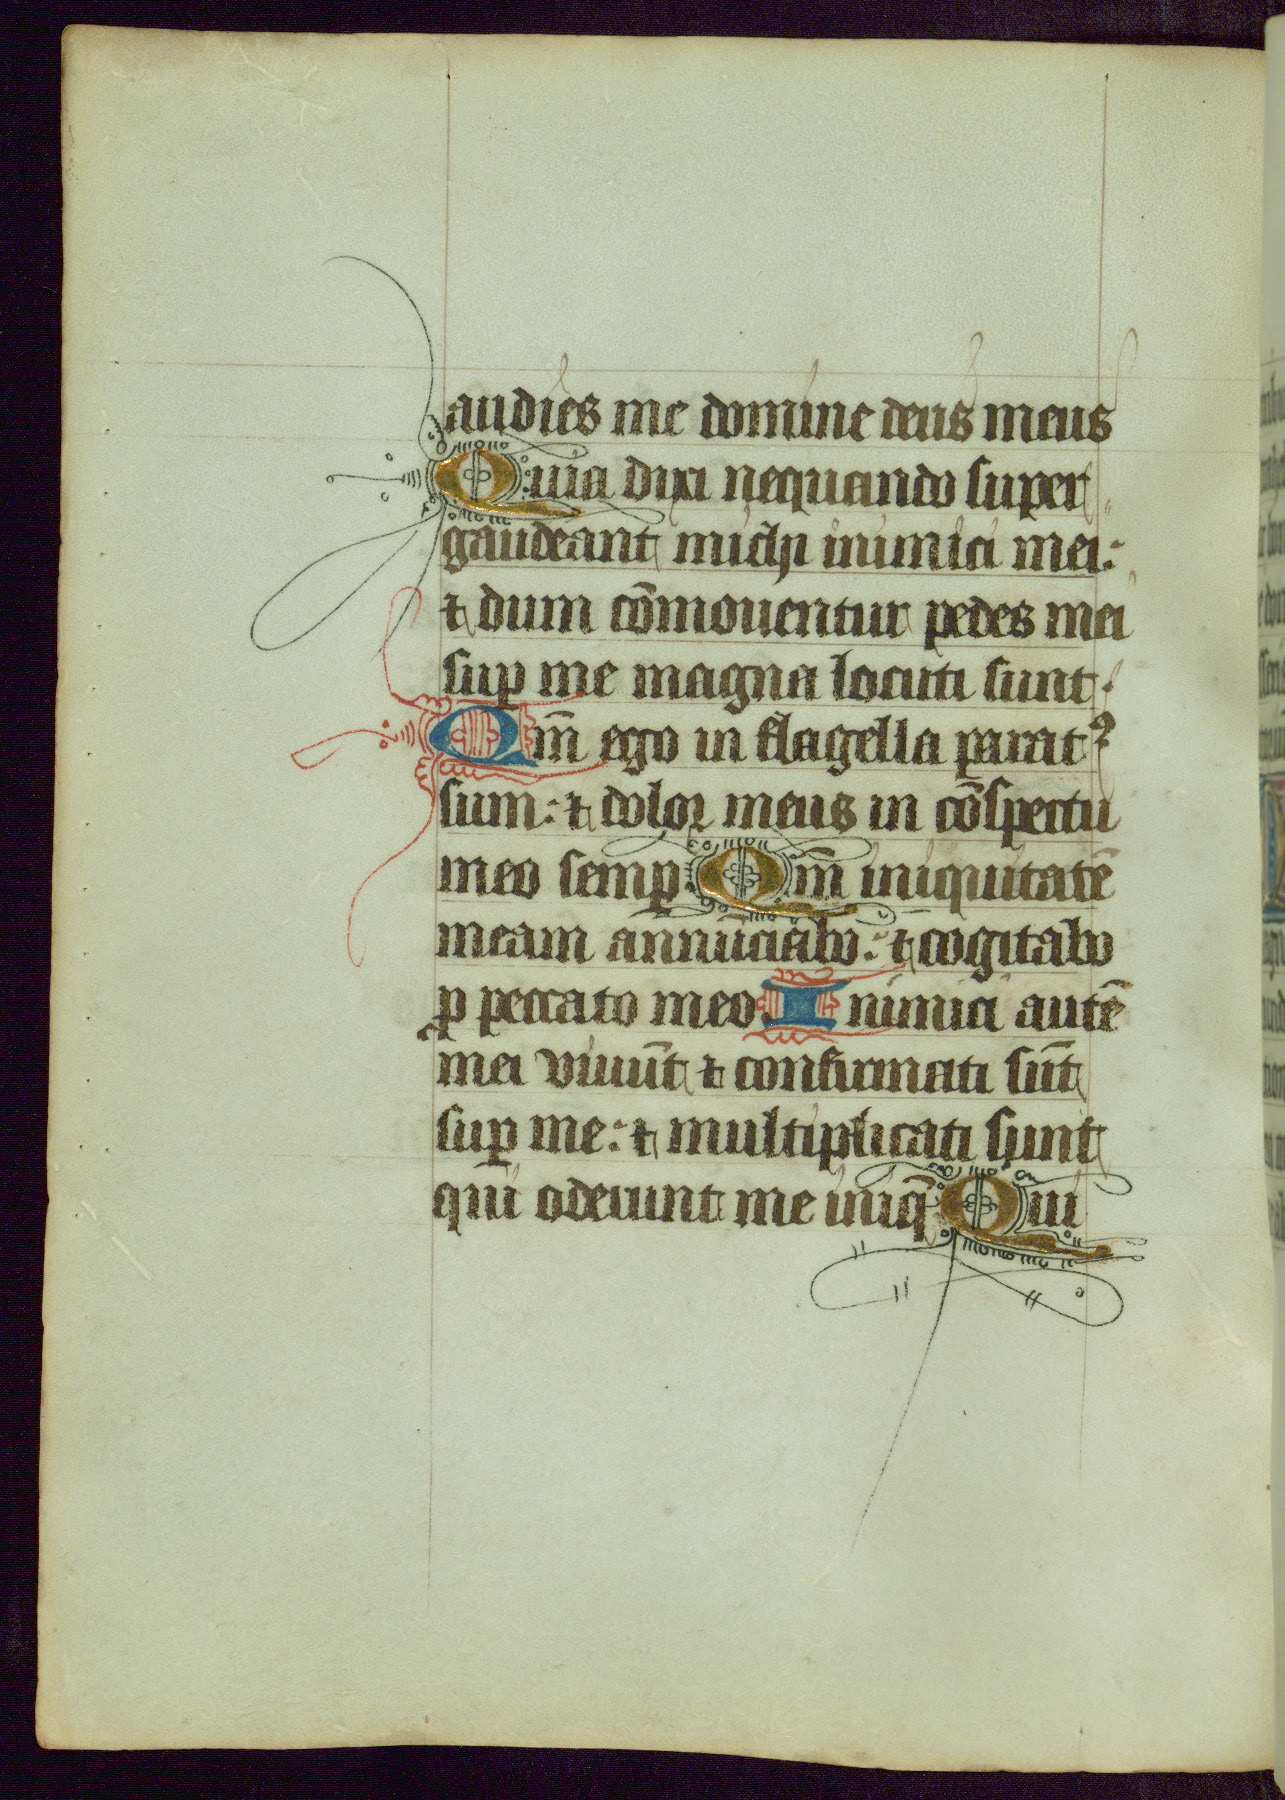 audies me domine deus meus
Quia dixi nequando super
gaudeant michi inimici mei:
⁊ dum cōmouentur pedes mei
suꝑ me magna locuti sunt.
Qm̄ ego in flagella paratꝰ
sum: ⁊ dolor meus in cōspectu
meo semꝑ. Qm̄ iniquitatē
meam annūciabo: ⁊ cogitabo
ꝓ peccato meo. Inimici autē
mei viuūt ⁊ confirmati sūt
suꝑ me: ⁊ multiplicati sunt
qui oderunt me iniq̄. Qui